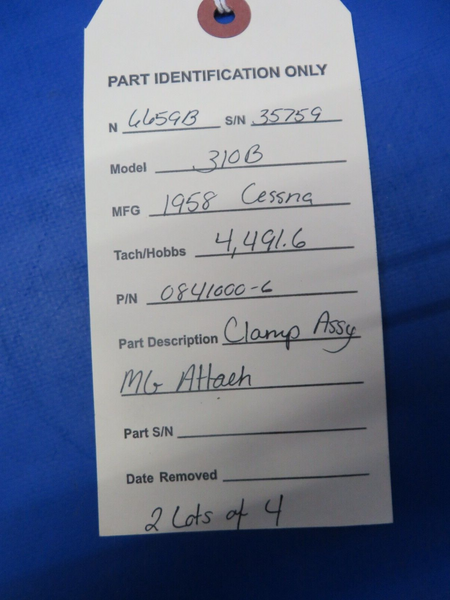 PART IDENTIFICATION ONLY
N 6659B S/N 35759
Model 310B
MFG 1958 Cessna
Tach/Hobbs 4,491.6
P/N 0841000-6
Part Description Clamp Assy
MG Attach
Part S/N
Date Removed
2 Lots of 4